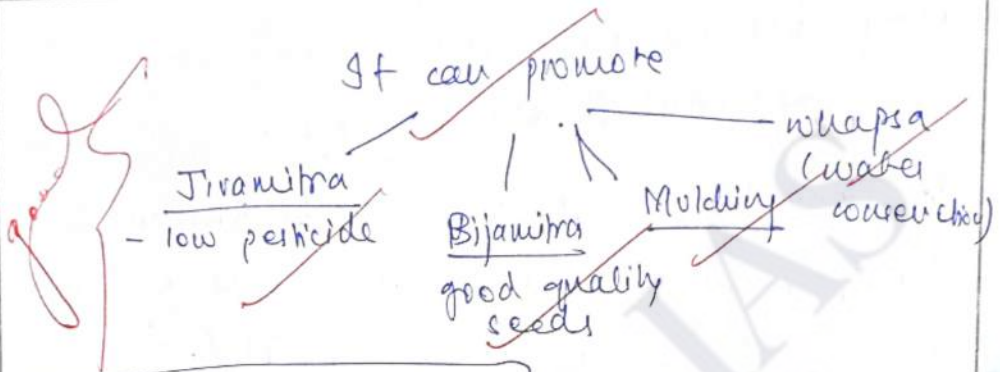 It can promote
Jivamitra
- low pesticide
Bijamitra
good quality
seeds
Mulching
whapsa
(water
conservation)
good
IAS